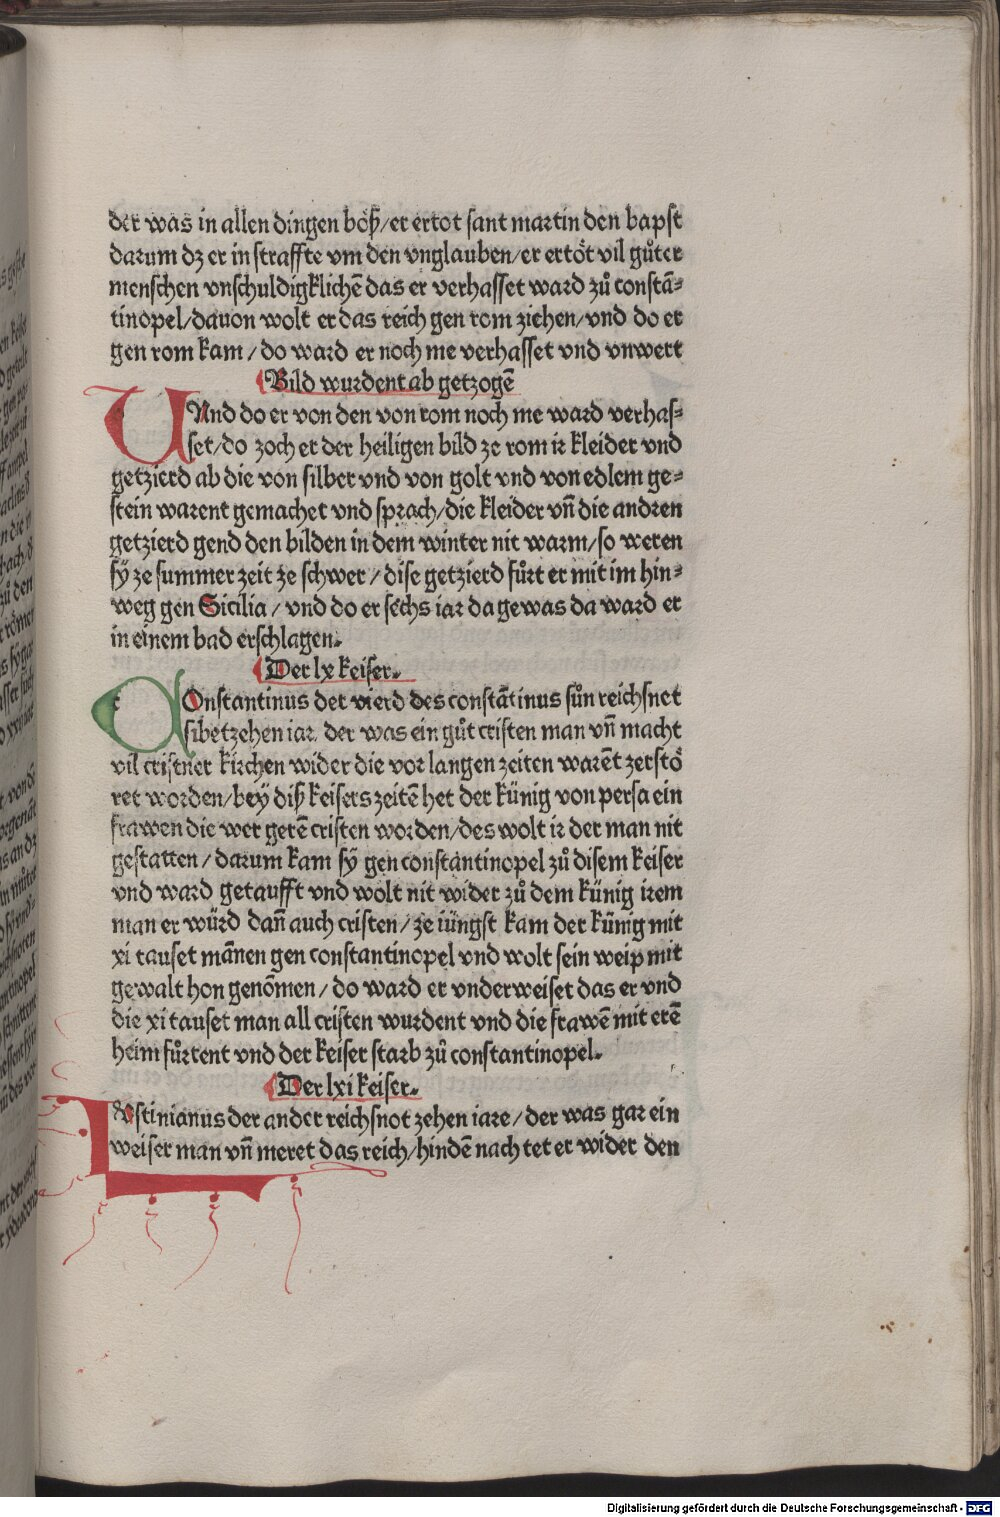 der was in allen dingen böß/er ertot sant martin den bapst
darum dz er in straffte vm den vnglauben/er ertöt vil gůter
menschen vnschuldigklichē das er verhasset ward zů constā⸗
tinopel/dauon wolt er das reich gen rom ziehen/vnd do er
gen rom kam/do ward er noch me verhasset vnd vnwert
Bild wurdent ab getzogē
UNnd do er von den von rom noch me ward verhas⸗
set/do zoch er der heiligen bild ze rom ir kleider vnd
getzierd ab die von silber vnd von golt vnd von edlem ge⸗
stein warent gemachet vnd sprach/die kleider vn̄ die andren
getzierd gend den bilden in dem winter nit warm/so weren
sÿ ze summer zeit ze schwer/dise getzierd fůrt er mit im hin⸗
weg gen Sicilia/vnd do er sechs iar da gewas da ward er
in einem bad erschlagen.
Der lx keiser.
COnstantinus der vierd des constātinus sůn reichsnet
sibetzehen iar. der was ein gůt cristen man vn̄ macht
vil cristner kirchen wider die vor langen zeiten warēt zerstö
ret worden/beÿ diß keisers zeitē het der künig von persa ein
frawen die wer gerē cristen worden/des wolt ir der man nit
gestatten/darum kam sÿ gen constantinopel zů disem keiser
vnd ward getaufft vnd wolt nit wider zů dem künig irem
man er würd dan̄ auch cristen/ze iüngst kam der künig mit
xi tauset mānen gen constantinopel vnd wolt sein weip mit
gewalt hon genōmen/do ward er vnderweiset das er vnd
die xi tauset man all cristen wurdent vnd die frawē mit erē
heim fůrtent vnd der keiser starb zů constantinopel.
Der lxi keiser.
Iustinianus der ander reichsnot zehen iare/der was gar ein
weiser man vn̄ meret das reich/hindē nach tet er wider den
Digitalisierung gefördert durch die Deutsche Forschungsgemeinschaft - DFG